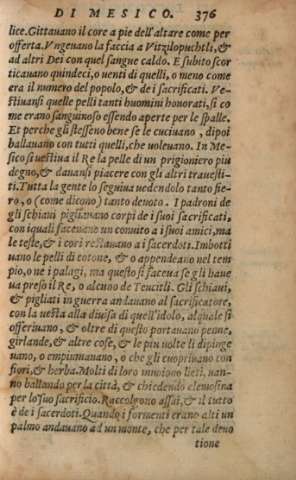 DI MESICO. 376
lice. Gittauano il core a pie dell'altare come per
offerta. Vngeuano la faccia a Vitzilopuchtli, &
ad altri Dei con quel sangue caldo. E subito scor
ticauano quindeci, o uenti di quelli, o meno come
era il numero del popolo, & de i sacrificati. Ve-
stiuansi quelle pelli tanti huomini honorati, si co
me erano sanguinose essendo aperte per le spalle.
Et perche gli stessero bene se le cuciuano, dipoi
ballauano con tutti quelli, che uoleuano. In Me-
sico si uestiua il Re la pelle di un prigioniero piu
degno, & dauansi piacere con gli altri trauesti-
ti. Tutta la gente lo seguiua uedendolo tanto fie-
ro, o (come dicono) tanto deuoto. I padroni de
gli schiaui pigliauano corpi de i suoi sacrificati,
con iquali faceuano un conuito a i suoi amici, ma
le teste, & i cori restauano a i sacerdoti. Imbotti
uano le pelli di cotone, & o appendeano nel tem
pio, o ne i palagi, ma questo si faceua se gli haue
ua preso il Re, o alcuno de Teuctli. Gli schiaui,
& pigliati in guerra andauano al sacrificatore,
con la uesta alla diuisa di quell'idolo, alquale si
offeriuano, & oltre di questo portauano penne,
girlande, & altre cose, & le piu uolte li dipinge
uano, o empiumauano, o che gli cuopriuano con
fiori, & herba. Molti di loro muoiono lieti, uan-
no ballando per la città, & chiedendo elemosina
per lo suo sacrificio. Raccolgono assai, & il tutto
è de i sacerdoti. Quando i formenti erano alti un
palmo andauano ad un monte, che per tale deuo
tione